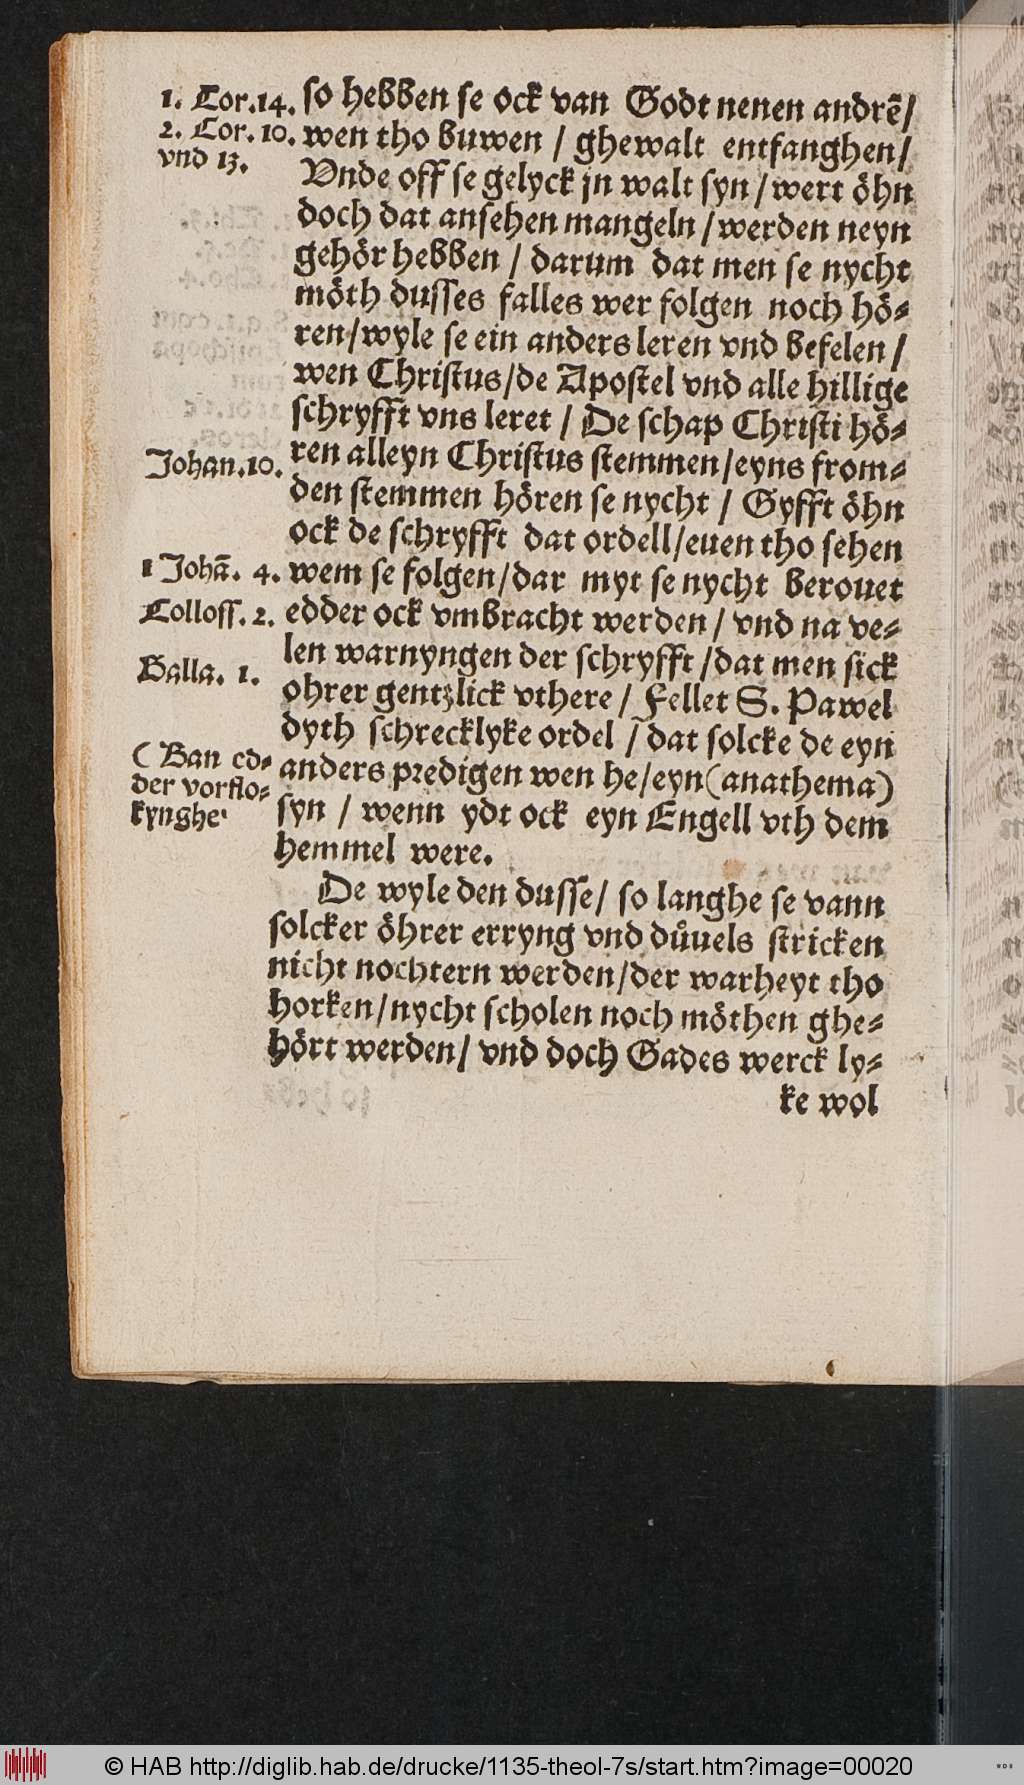 1. Cor.14.
2. Cor. 10.
vnd 13.
so hebben se ock van Godt nenen andrē/
wen tho buwen / ghewalt entfanghen/
Vnde off se gelyck jn walt syn / wert öhn
doch dat ansehen mangeln / werden neyn
gehör hebben / darum dat men se nycht
möth dusses falles wer folgen noch hö-
ren/wyle se ein anders leren vnd befelen /
wen Christus/de Apostel vnd alle hillige
schryfft vns leret / De schap Christi hö-
Johan.10.
ren alleyn Christus stemmen/eyns from-
den stemmen hören se nycht / Gyfft öhn
ock de schryfft dat ordell/euen tho sehen
1 Johā. 4.
wem se folgen/dar myt se nycht berouet
Coloss. 2.
edder ock vmbracht werden / vnd na ve-
len warnyngen der schryfft /dat men sick
Galla. 1.
ohrer gentzlick vthere / Fellet S. Pawel
dyth schrecklyke ordel / dat solcke de eyn
( Ban ed-
der vorflo-
kynghe
anders predigen wen he/eyn (anathema)
syn / wenn ydt ock eyn Engell vth dem
hemmel were.
De wyle den dusse/ so langhe se vann
solcker öhrer erryng vnd důuels stricken
nicht nochtern werden/der warheyt tho
horken/nycht scholen noch möthen ghe-
hört werden/ vnd doch Gades werck ly-
ke wol
© HAB http://diglib.hab.de/drucke/1135-theol-7s/start.htm?image=00020